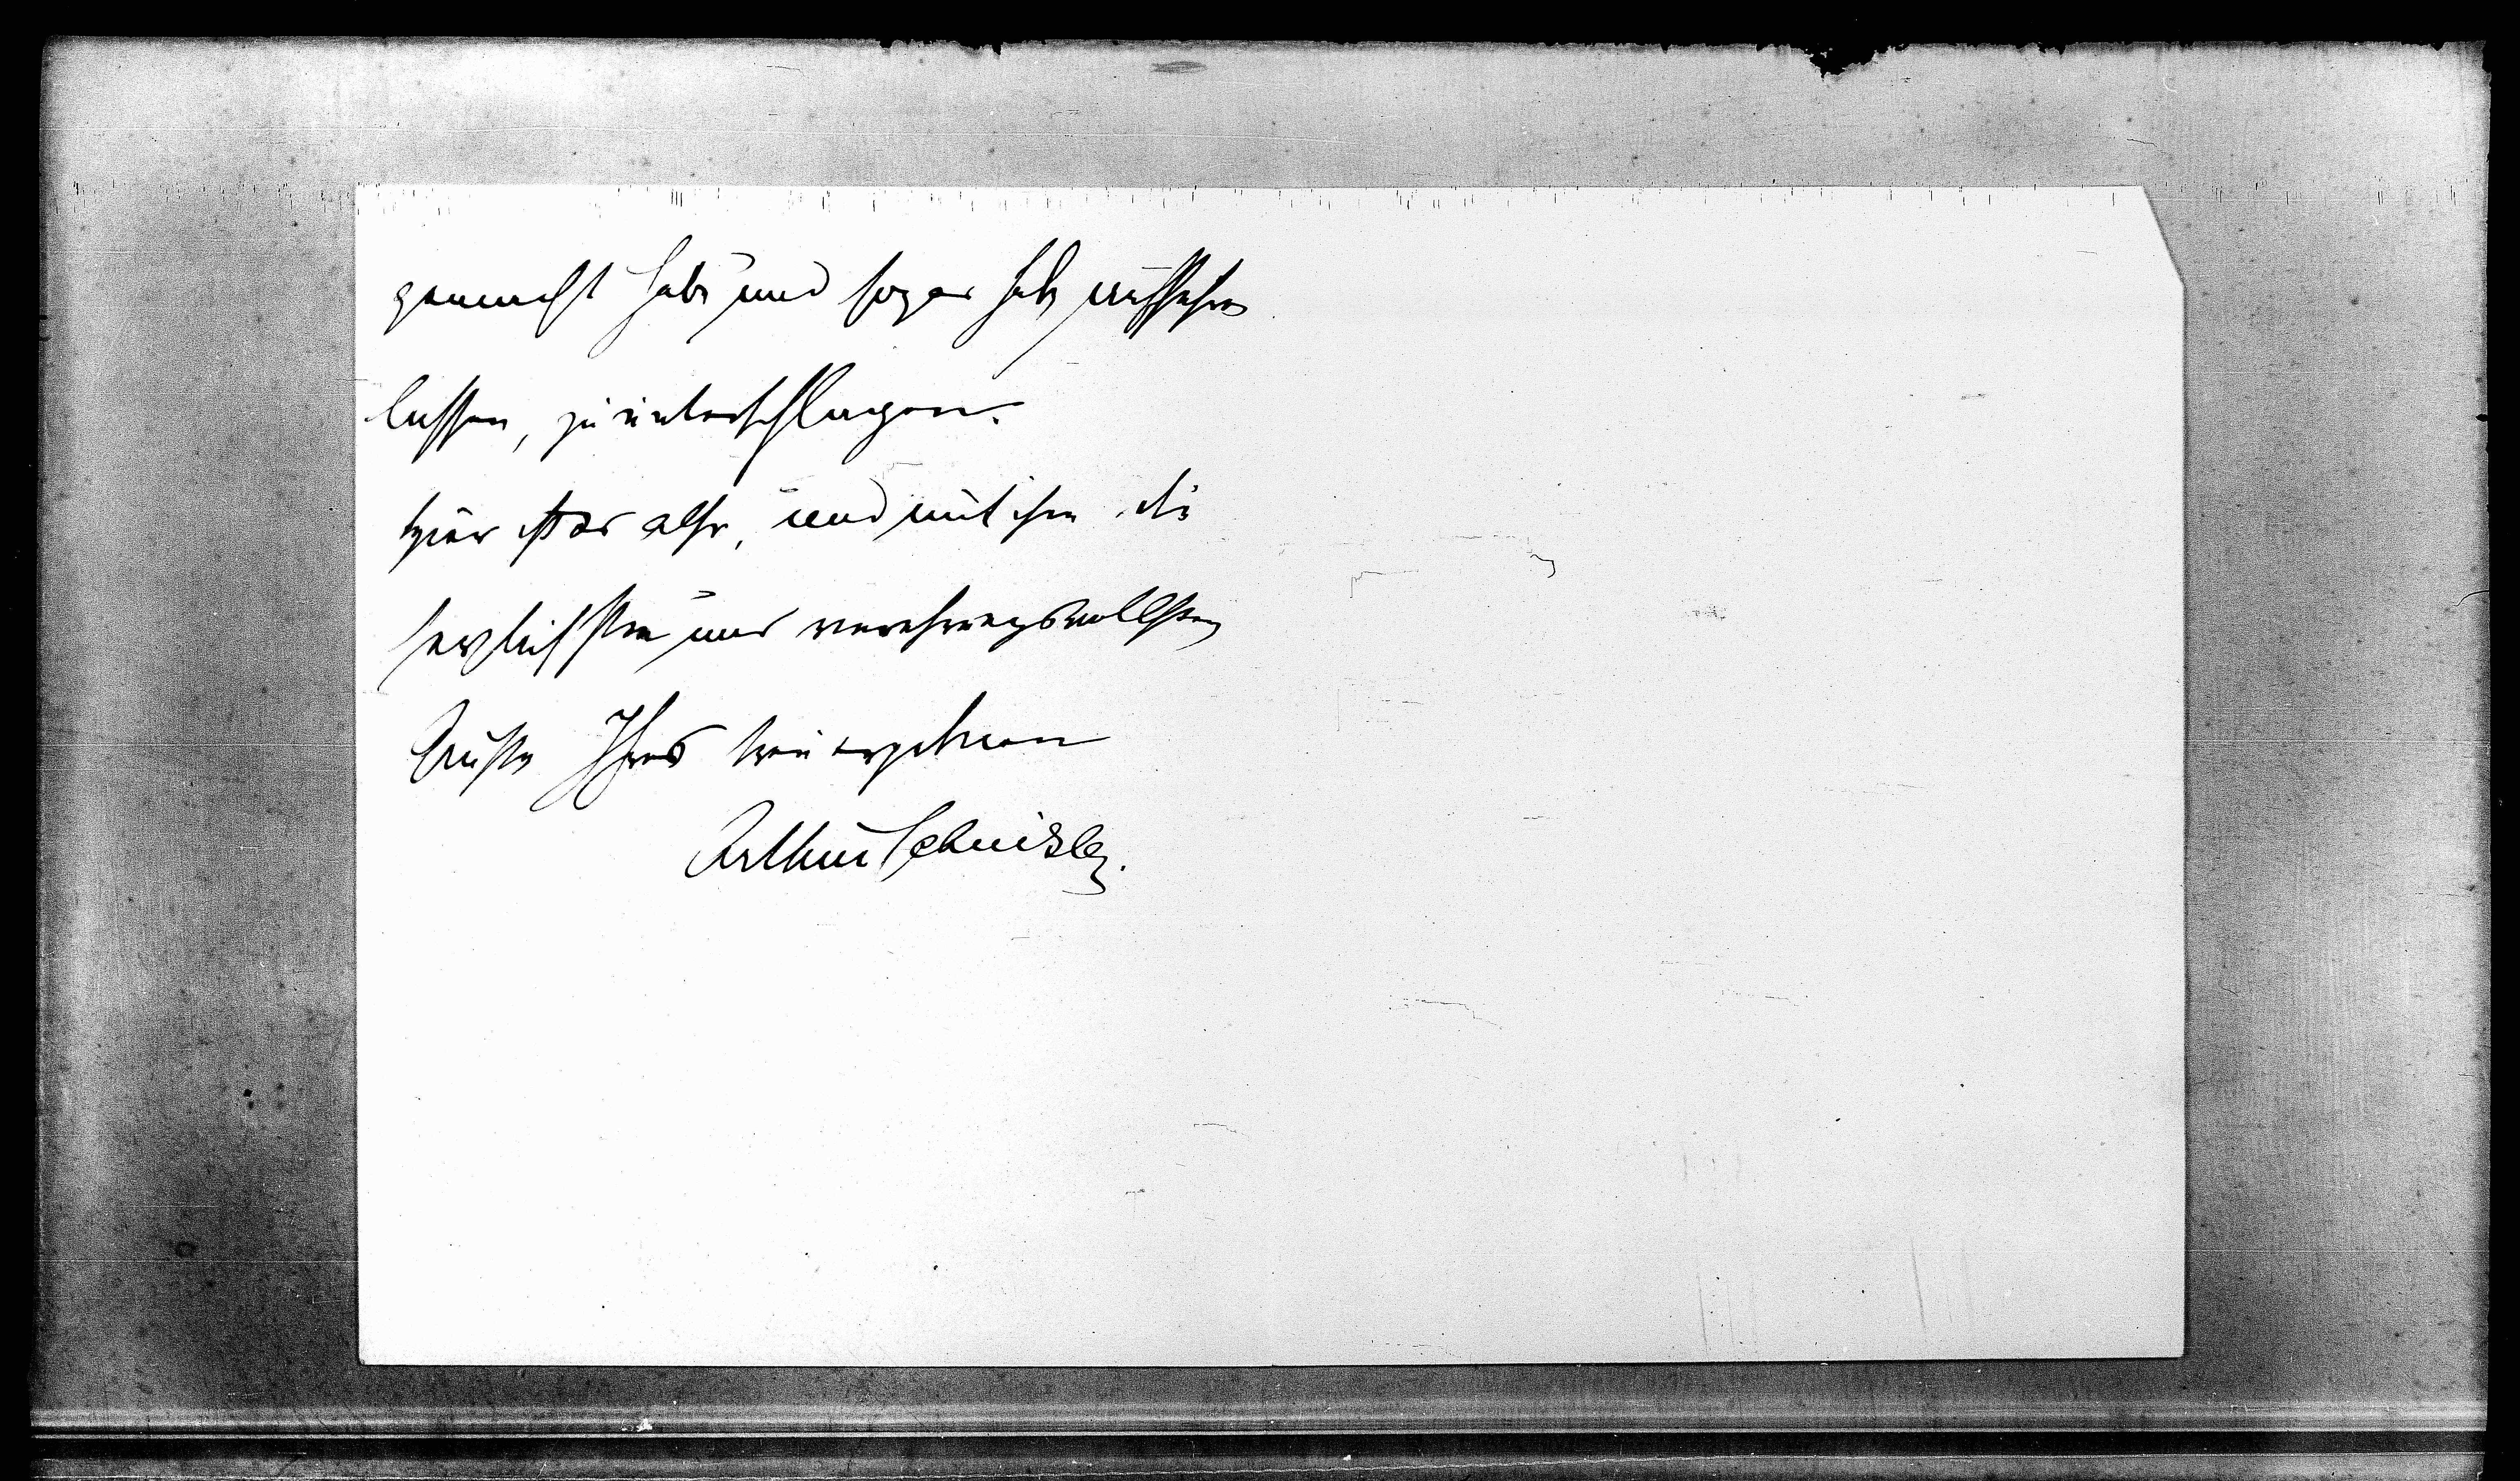 gemacht habe und sogar habe aufführen
lassen, zu unterschlagen.
Hier ist er also, und mit ihm die
herzlichsten und verehrungsvollsten
Grüße Ihres treu ergebenen
Arthur Schnitzler.